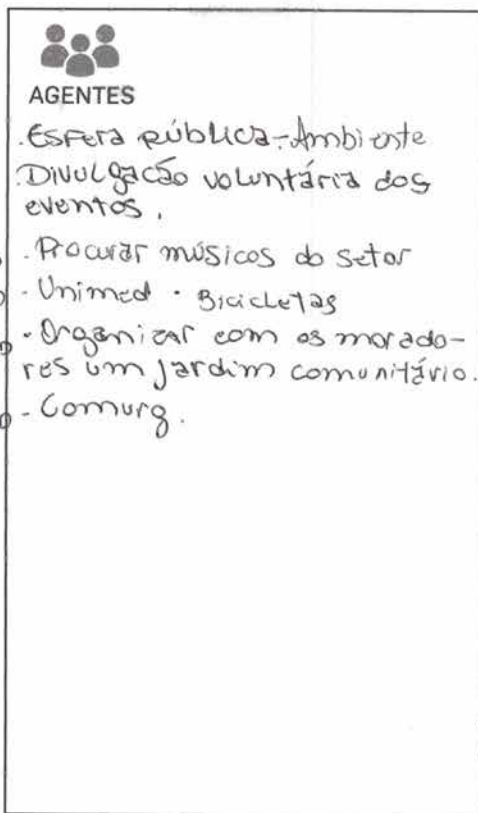 AGENTES
. Esfera pública - Ambiente
. Divulgação voluntária dos
eventos.
. Procurar músicos do setor
- Unimed · Bicicletas
- Organizar com os morado-
res um jardim comunitário.
- Comurg.